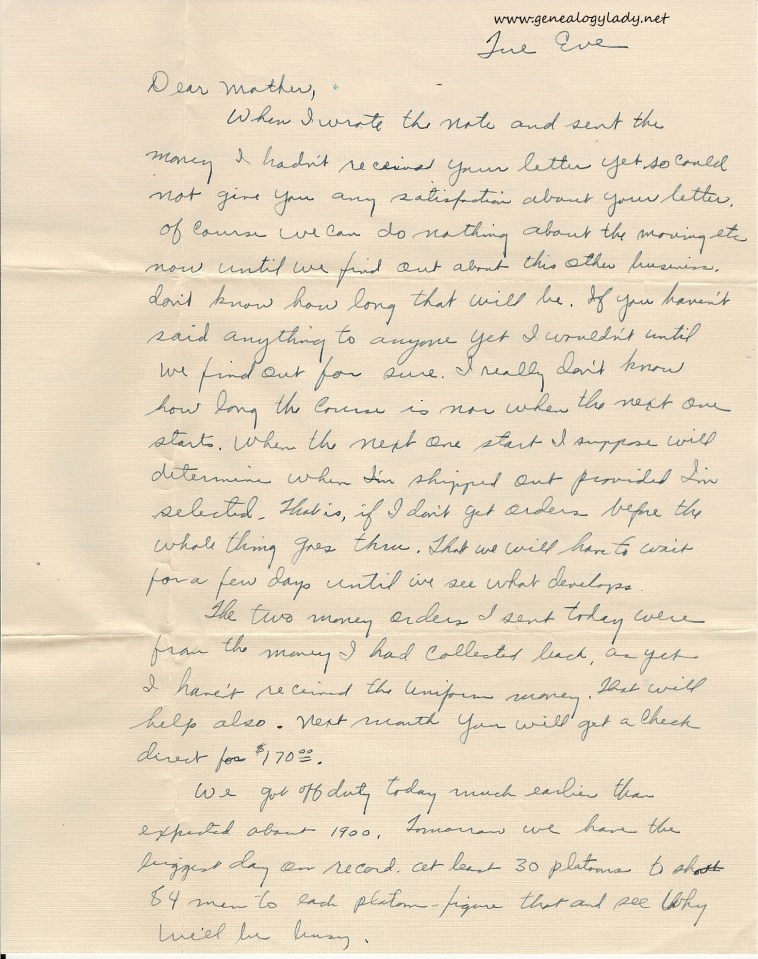 www.genealogylady.net
Tue Eve
Dear Mother,
When I wrote the note and sent the
money I hadn't received your letter yet so could
not give you any satisfaction about your letter.
Of course we can do nothing about the moving etc
now until we find out about this other business.
don't know how long that will be. If you haven't
said anything to anyone yet I wouldn't until
we find out for sure. I really don't know
how long the course is nor when the next one
starts. When the next one start I suppose will
determine when I'm shipped out provided I'm
selected. That is, if I don't get orders before the
whole thing goes thru. That we will have to wait
for a few days until we see what develops.
The two money orders I sent today were
from the money I had collected back, as yet
I haven't received the uniform money. That will
help also. Next month you will get a check
direct for $170.00.
We got off duty today much earlier than
expected about 1900. Tomorrow we have the
biggest day on record. at least 30 platoons to shoot
64 men to each platoon - figure that and see why
we'll be busy.